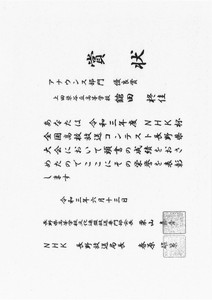 賞状
アナウンス部門 優良賞
上田染谷丘高等学校
舘田 柊佳
あなたは令和三年度NHK杯
全国高校放送コンテスト長野県
大会において頭書の成績をおさ
めたのでここにその栄誉を表彰
します
令和三年六月十三日
長野県高等学校文化連盟放送専門部会長
NHK 長野放送局長 春原